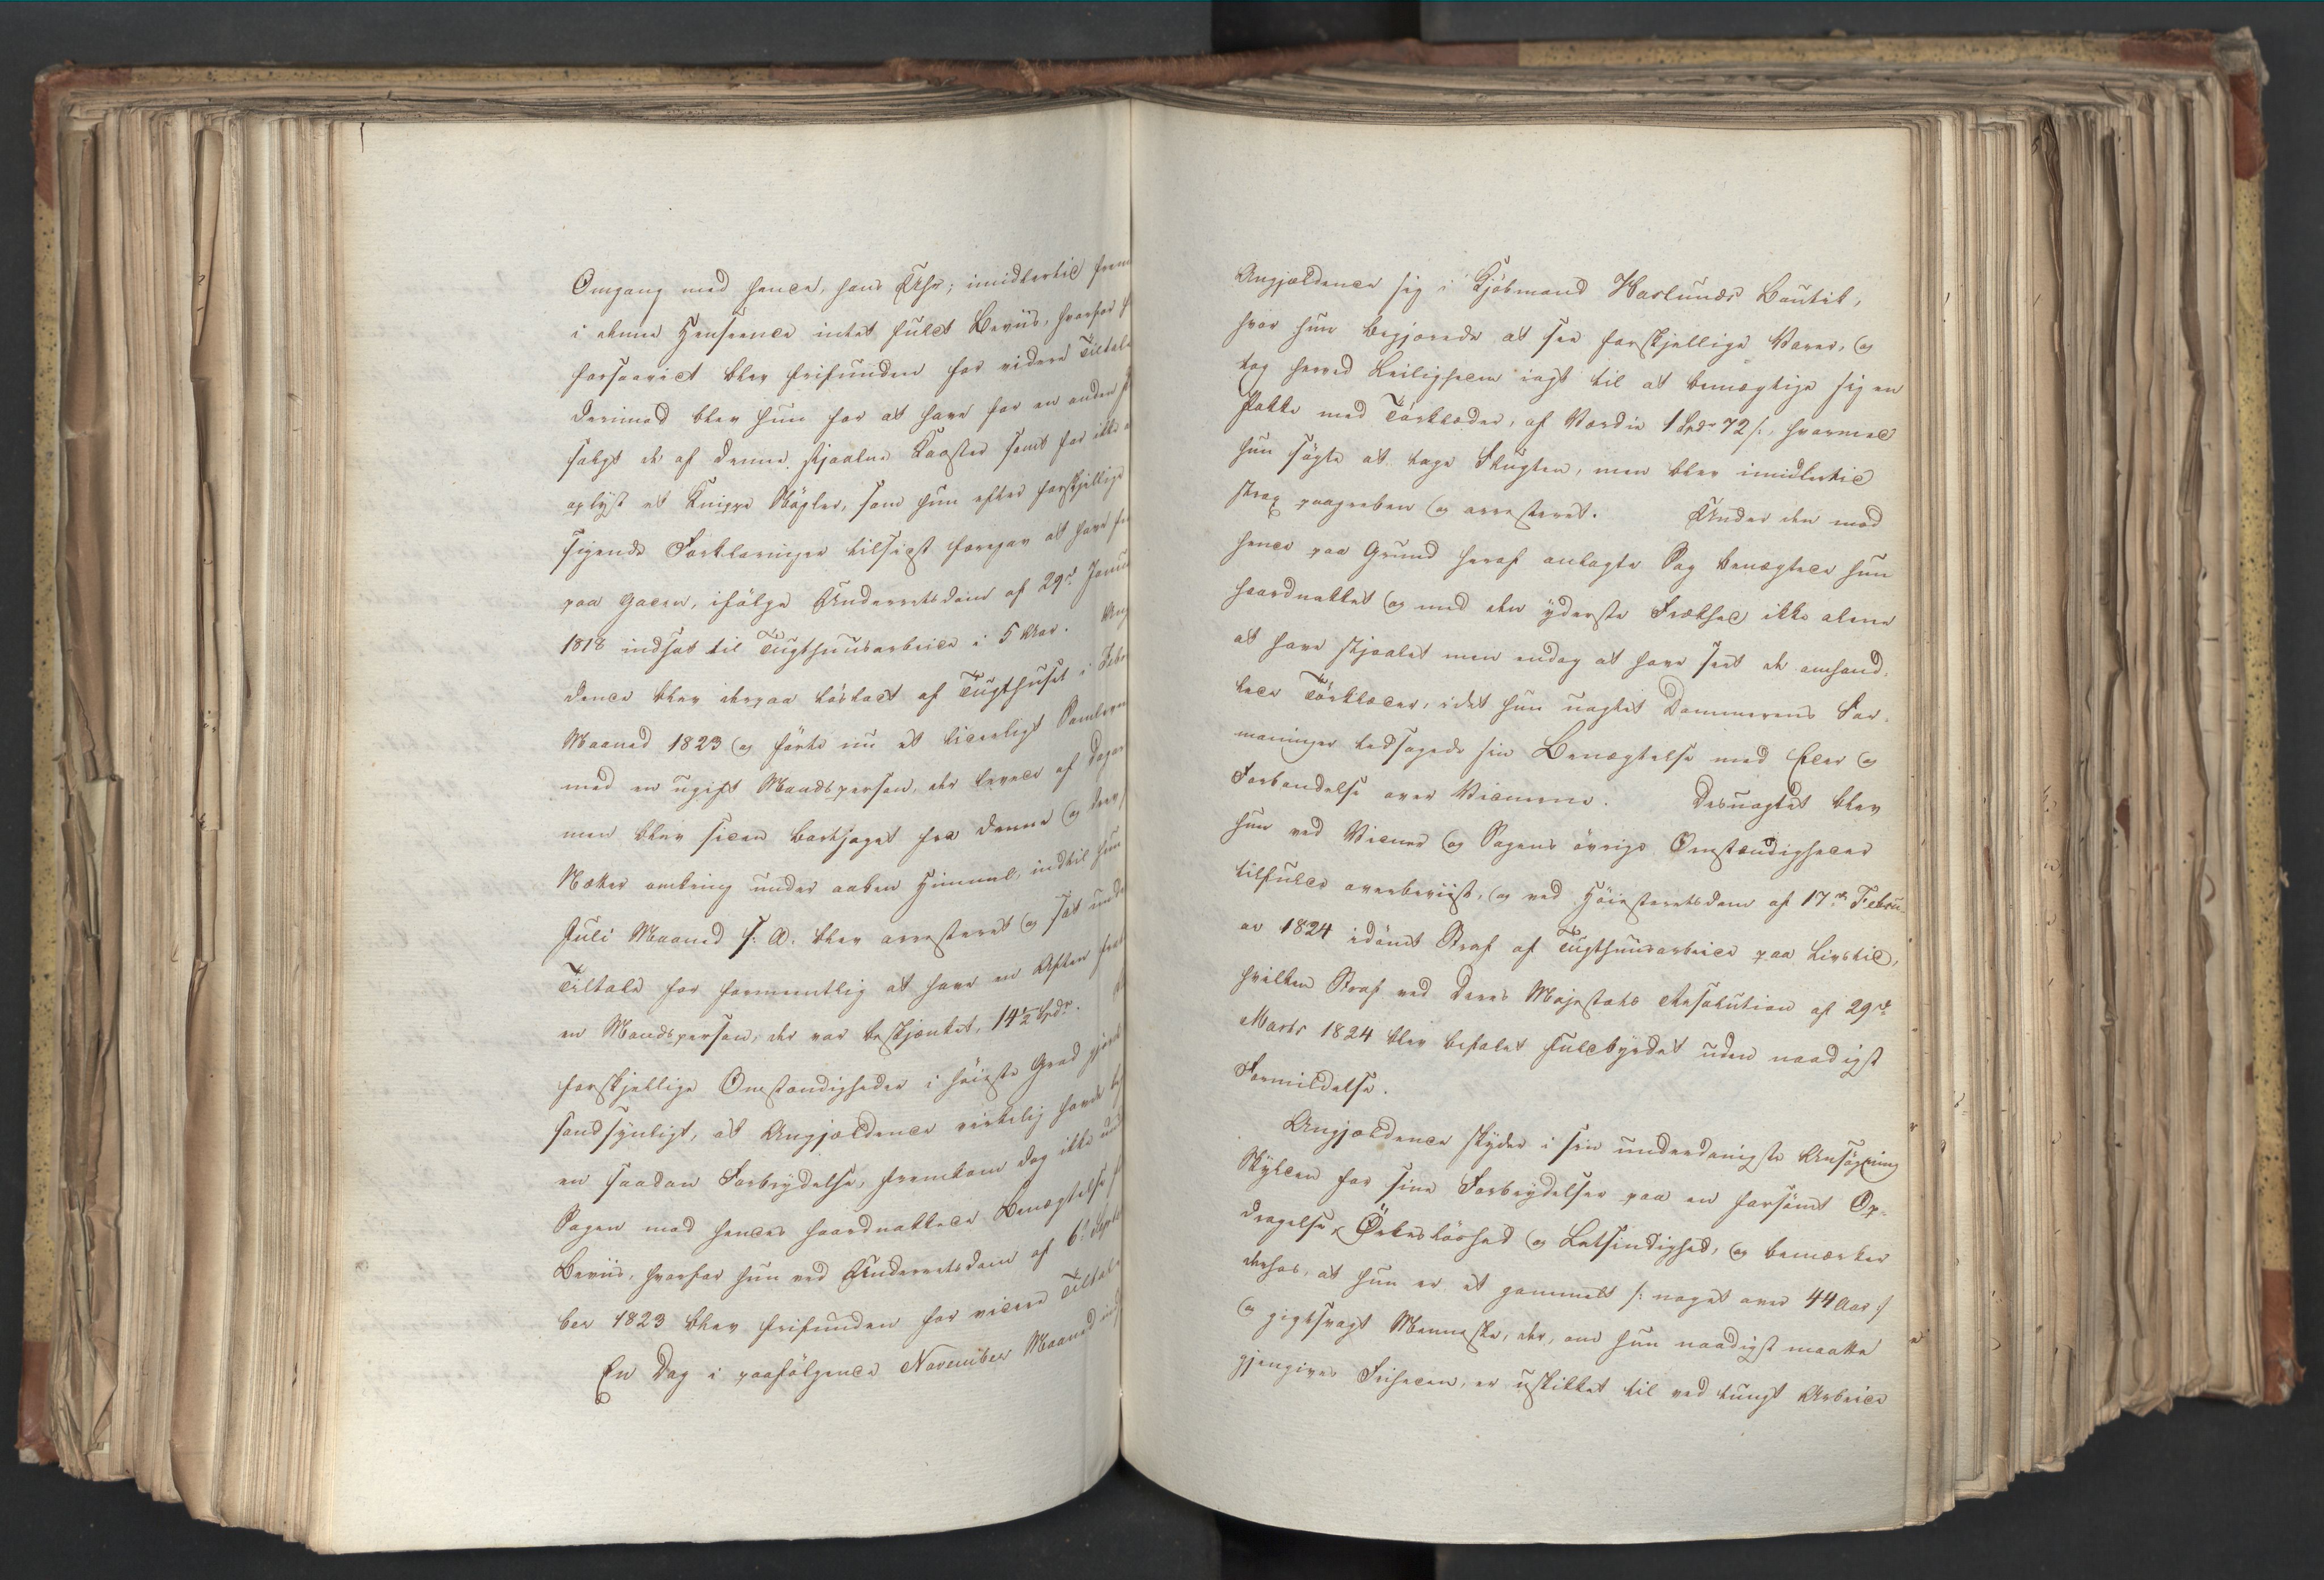 Omgang med hende, hans Uhr; imidlertid frem
i denne Henseende intet fuldt Beviis, hvorfor h
forsaavidt blev frifunden for videre Tiltale
Derimod blev hun for at have for en anden
solgt de af denne stjaalne Kaaster samt for ikke
oplyst et Knippe Nøgler, som hun efter forskjellige
sigende Forklaringer tilsidst foregav at have fu
paa Gaden, ifølge Underretsdom af 29de Janu
1818 indsat til Tugthuusarbeide i 5 Aar. Ang
dende blev derpaa løsladt af Tugthuset i Febr
Maaned 1823 og førte nu et liderligt Samlevn
med en ugift Mandsperson, der levede af Dager
men blev siden bortjaget fra denne og drev
Nætter omkring under aaben Himmel, indtil hun
Juli Maaned s: A: blev arresteret og sat unde
Tiltale for formeentlig at have en Aften fra
en Mandsperson, der var beskjænket, 14½ Spdr.
forskjellige Omstændigheder i høieste Grad gjorde
sandsynligt, at Angjældende virkelig havde be
en saadan Forbrydelse, fremkom dog ikke und
Sagen mod hendes haardnakkede Benægtelse f
Beviis, hvorfor hun ved Underretsdom af 6te Septe
ber 1823 blev frifunden for videre Tiltale
En Dag i paafølgende November Maaned ind
Angjældende sig i Kjøbmand Haslunds Boutik,
hvor hun begjærede at see forskjellige Varer, og
tog herved Leiligheden iagt til at bemægtige sig en
Pakke med Tørklæder, af Værdie 1 Spdr 72 s., hvormed
hun søgte at tage Flugten, men blev imidlertid
strax paagreben og arresteret. Under den mod
hende paa Grund heraf anlagte Sag benægtede hun
haardnakket og med den yderste Frækhed ikke alene
at have stjaalet men endog at have seet de omhand,
lede Tørklæder, idet hun uagtet Dommerens For,
maninger ledsagede sin Benægtelse med Eder og
Forbandelse over Vidnerne. Desuagtet blev
hun ved Vidner og Sagens øvrige Omstændigheder
tilfulde overbeviist, og ved Høiesteretsdom af 17de Febru,
ar 1824 idømt Straf af Tugthuusarbeide paa Livstid,
hvilken Straf ved Deres Majestæts Resolution af 29de
Marts 1824 blev befalet fuldbyrdet uden naadigst
Formildelse.
Angjældende skyder i sin underdanigste Ansøgning
Skylden for sine Forbrydelser paa en forsømt Op,
dragelse, Ørkesløshed og Letsindighed, og bemærker
derhos, at hun er et gammelt /: noget over 44 Aar :/
og gigtsvagt Menneske, der, om hun naadigst maatte
gjengives Friheden, er uskikket til ved tungt Arbeide